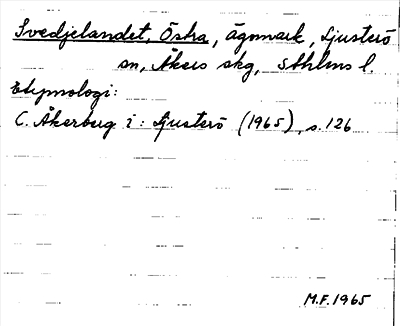 Svedjelandet, Östra, ägomark, Ljusterö
sn, Åkers skg, Sthlms l.
Etymologi:
C. Åkerberg i: Ljusterö (1965), s. 126
M.F. 1965